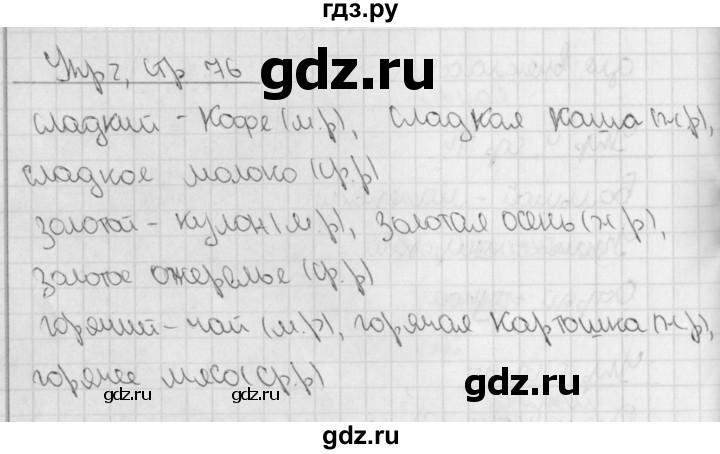 гдз.ру
Упр 2, стр 76
сладкий - кофе (м.р), сладкая каша (ж.р),
сладкое молоко (ср.р)
золотой - кулон (м.р), золотая осень (ж.р),
золотое ожерелье (ср.р)
горячий - чай (м.р), горячая картошка (ж.р),
горячее мясо (ср.р)
gdz.ru gdz.ru
gdz.ru